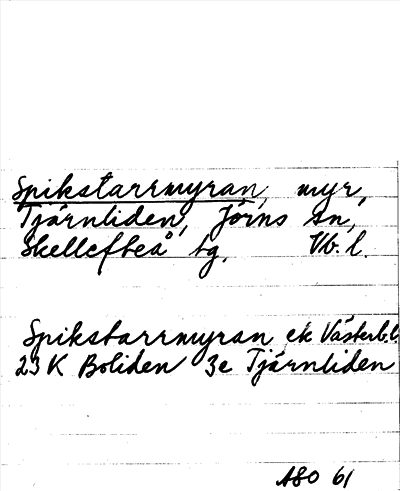 Spikstarrmyran, myr,
Tjärnliden, Jörns sn,
Skellefteå tg. Vb. l.
Spikstarrmyran ek Västerb.l.
23 K Boliden 3e Tjärnliden
ASO 61